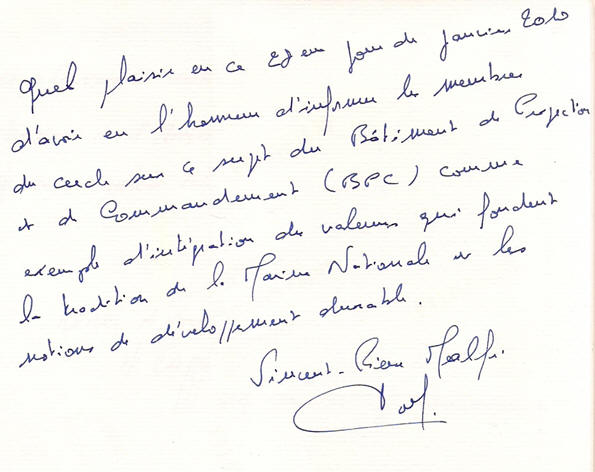 Quel plaisir en ce 27 em jour de Janvier 2010
d'avoir eu l'honneur d'informer les membres
du cercle sur ce sujet du Bâtiment de Projection
et de Commandement (BPC) comme
exemple d'intégration des valeurs qui fondent
la tradition de la Marine Nationale et les
notions de développement durable.
Vincent-Pierre